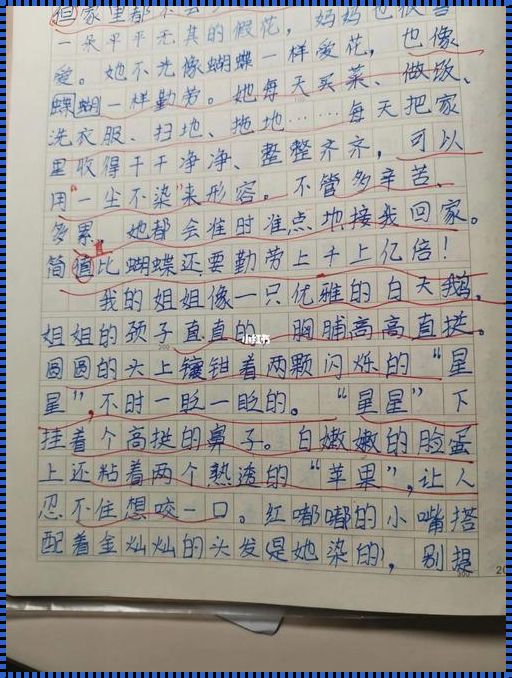 但家里都不会
一朵平平无其的假花，妈妈也很喜
爱。她不光像蝴蝶一样爱花，也像
蝶蝴一样勤劳。她每天买菜、做饭、
洗衣服、扫地、拖地……每天把家
里收得干干净净、整整齐齐，可以
用“一尘不染”来形容。不管多辛苦、
多累，她都会准时准点地接我回家。
简值比蝴蝶还要勤劳上千上亿倍！
我的姐姐像一只优雅的白天鹅，
姐姐的颈子直直的，胸脯高高直挺。
圆圆的头上镶钳着两颗闪烁的“星
星”，不时一眨一眨的。“星星”下
挂着个高挺的鼻子。白嫩嫩的脸蛋
上还粘着两个熟透的“苹果”，让人
忍不住想咬一口。红嘟嘟的小嘴搭
配着金灿灿的头发（是她染的），别提
小红书